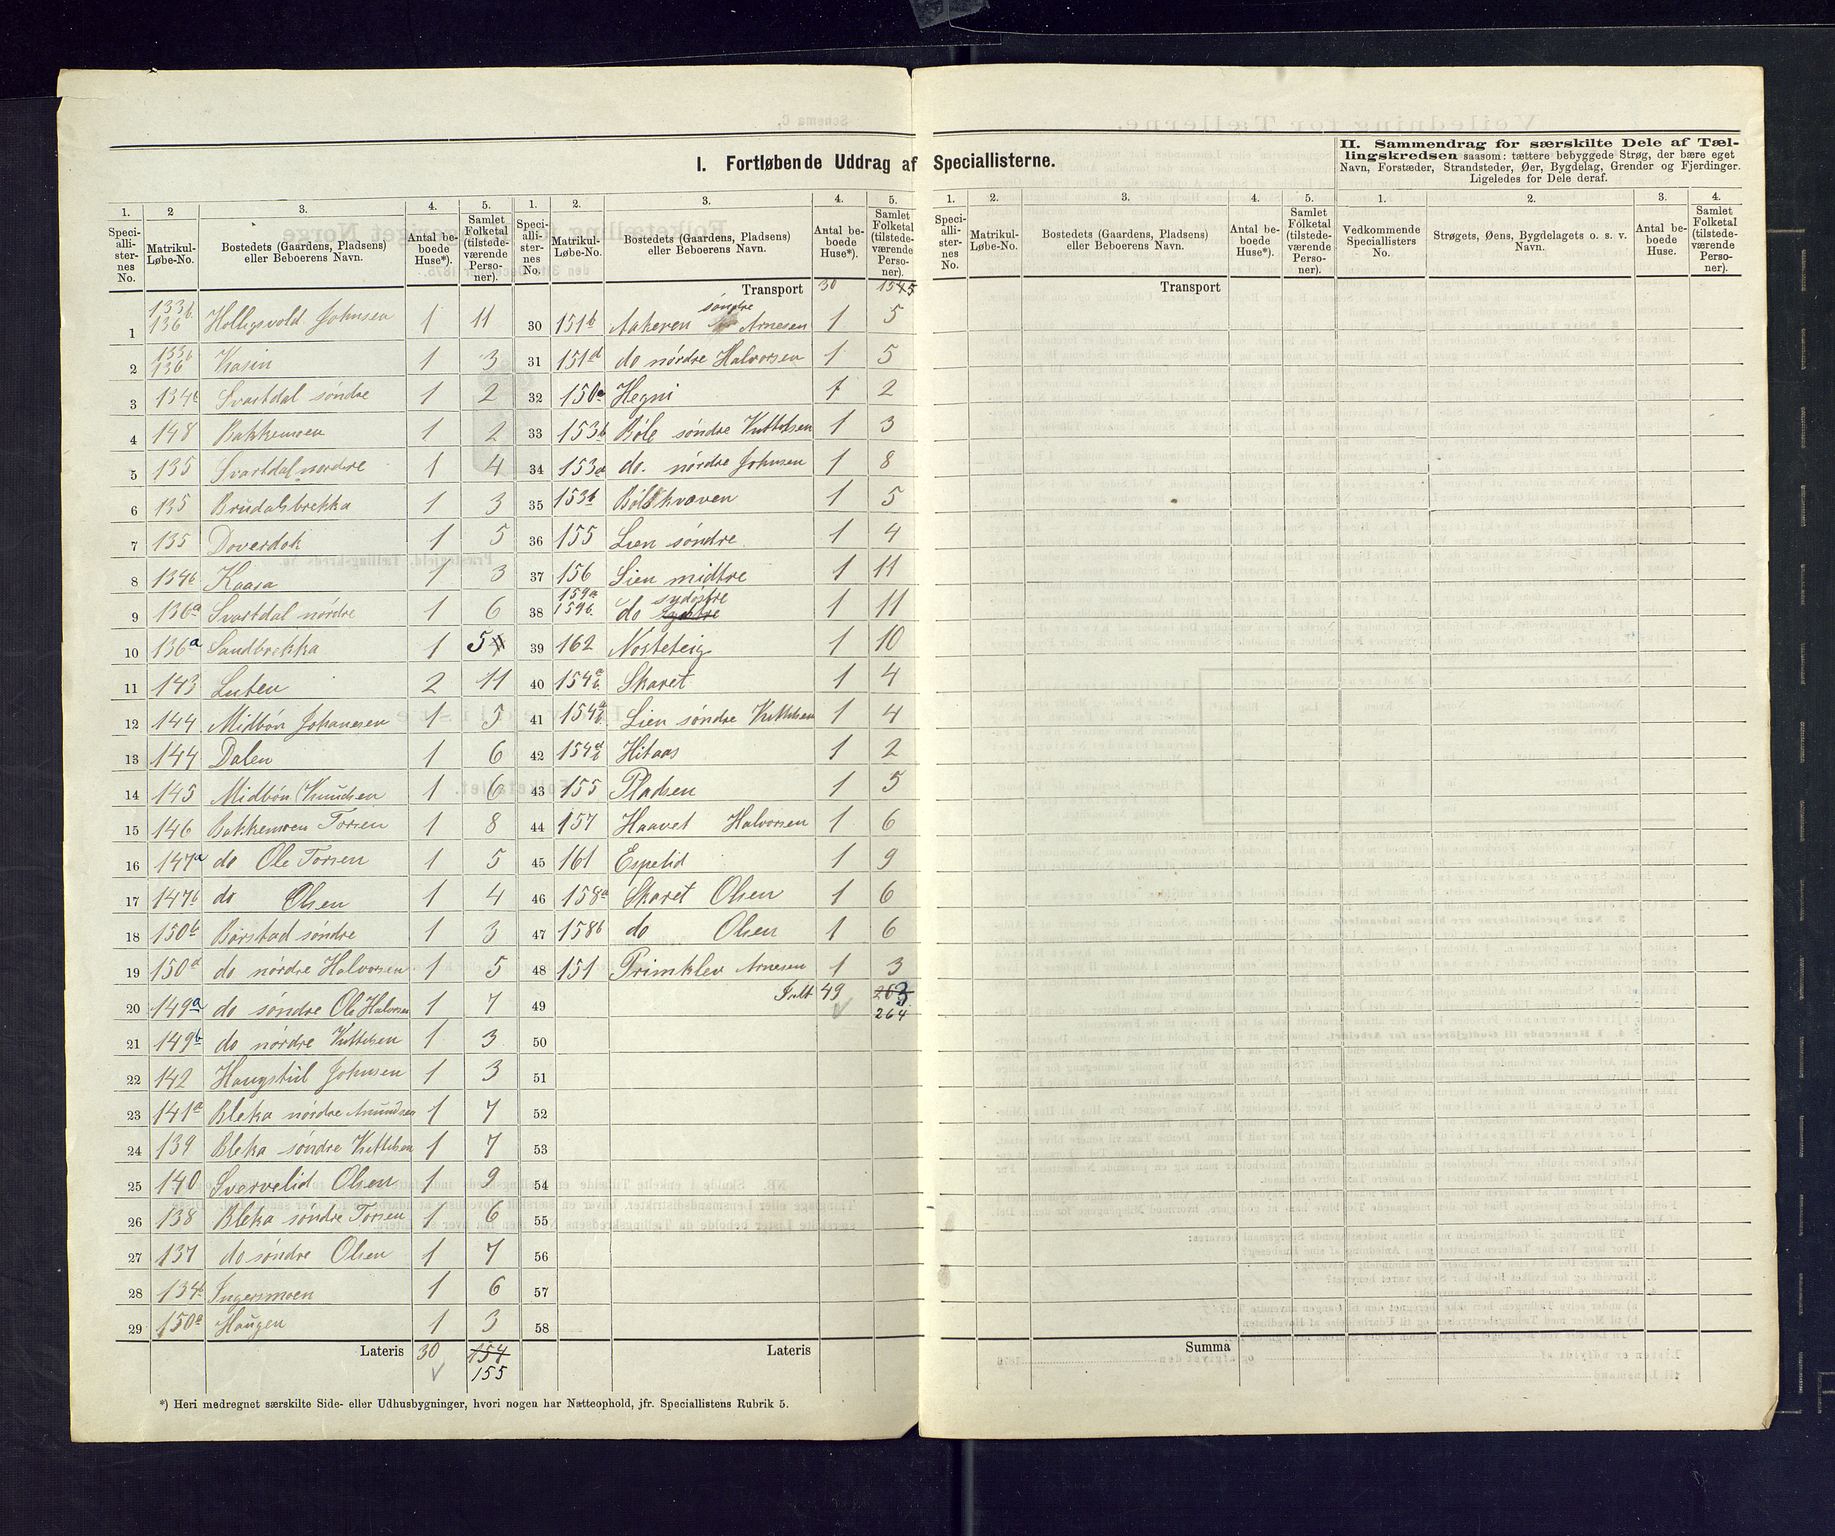 I. Fortløbende Uddrag af Speciallisterne.
II. Sammendrag for særskilte Dele af Tæl-
lingskredsen saasom: tættere bebyggede Strøg, der bære eget
Navn, Forstæder, Strandsteder, Øer, Bygdelag, Grender og Fjerdinger.
Ligeledes for Dele deraf.
1. 2 3. 4. 5. 1. 2. 3. 4. 5. 1. 2. 3. 4. 5. 1. 2. 3. 4.
Speciallisternes No. Matrikul-Løbe-No. Bostedets (Gaardens, Pladsens) eller Beboerens Navn. Antal beboede Huse*). Samlet Folketal (tilstedeværende Personer).
Speciallisternes No. Matrikul-Løbe-No. Bostedets (Gaardens, Pladsens) eller Beboerens Navn. Antal beboede Huse*). Samlet Folketal (tilstedeværende Personer).
Speciallisternes No. Matrikul-Løbe-No. Bostedets (Gaardens, Pladsens) eller Beboerens Navn. Antal beboede Huse*). Samlet Folketal (tilstedeværende Personer).
Vedkommende Speciallisters No. Strøgets, Øens, Bygdelagets o. s. v. Navn. Antal beboede Huse. Samlet Folketal (tilstedeværende Personer).
1 133b 136 Holligsvold Johnsen 1 11
2 133b 136 Kasin 1 3
3 134b Svartdal søndre 1 2
4 148 Bakkemoen 1 2
5 135 Svartdal nordre 1 4
6 135 Brudalsbrekka 1 3
7 135 Doverdok 1 5
8 134b Kaasa 1 3
9 136a Svartdal nørdre 1 6
10 136a Sandbrekka 1 5
11 143 Luten 2 11
12 144 Midbøn Johanesen 1 5
13 144 Dalen 1 6
14 145 Midbøn Knudsen 1 6
15 146 Bakkemoen Torsen 1 8
16 147a do Ole Torsen 1 5
17 147b do Olsen 1 4
18 150b Børstad søndre 1 3
19 150d do nørdre Halvorsen 1 5
20 149a do søndre Ole Halvorsen 1 7
21 149b do nørdre Kittelsen 1 3
22 142 Haugstul Johnsen 1 3
23 141a Bleka nørdre Amundsen 1 7
24 139 Bleka søndre Kittelsen 1 7
25 140 Svervelid Olsen 1 9
26 138 Bleka søndre Torsen 1 6
27 137 do søndre Olsen 1 7
28 134b Ingersmoen 1 6
29 150a Haugen 1 3
Lateris 30 154
155
Transport 30 1545
30 151b Aakeren søndre Arnesen 1 5
31 151d do nørdre Halvorsen 1 5
32 150a Hegni 1 2
33 153b Bøle søndre Kittelsen 1 3
34 153a do. nørdre Johnsen 1 8
35 153b Bølekvæven 1 5
36 155 Lien søndre 1 4
37 156 Lien midtre 1 11
38 159a 159b do sydøstre 1 11
39 162 Nosteteig 1 10
40 154a b. Skaret 1 4
41 154a b. Lien søndre Kittelsen 1 4
42 154a b Hitaas 1 2
43 155 Pladsen 1 5
44 157 Haavet Halvorsen 1 6
45 161 Espelid 1 9
46 158a Skaret Olsen 1 6
47 158b do Olsen 1 6
48 151 Primklev Arnesen 1 3
49 Ialt 49 263
264
50
51
52
53
54
55
56
57
58
Lateris
Transport
Summa
*) Heri medregnet særskilte Side- eller Udhusbygninger, hvori nogen har Natteophold, jfr. Speciallistens Rubrik 5.